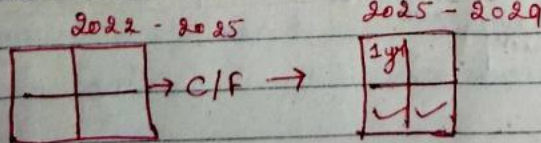 2022 - 2025
2025 - 2029
1yr
→ C/F →
✓ ✓